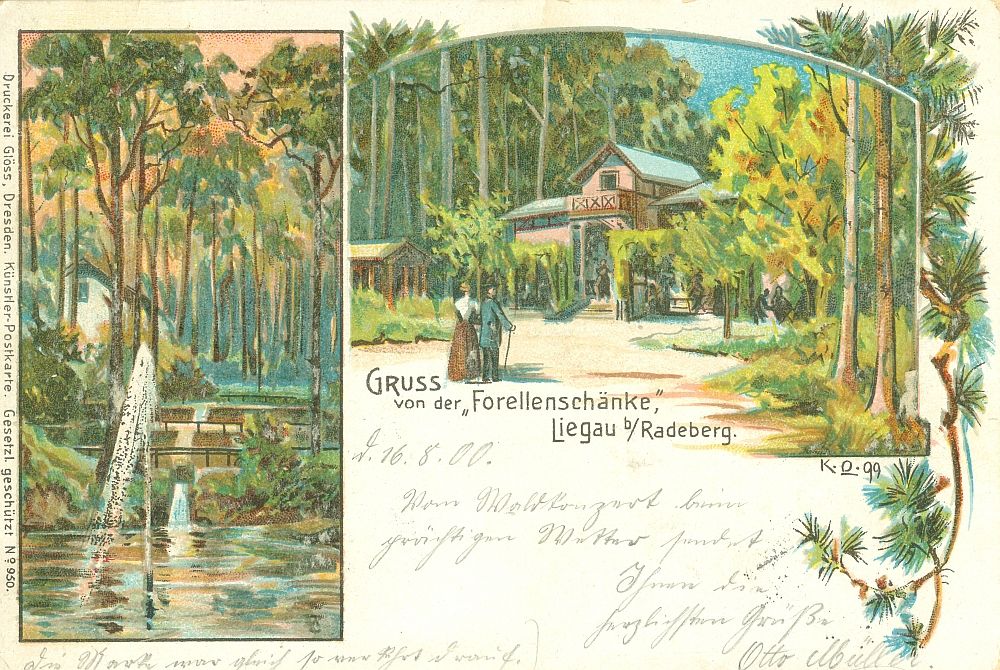 Druckerei Glöss, Dresden. Künstler-Postkarte. Gesetzl. geschützt No 950.
GRUSS
von der „Forellenschänke",
Liegau b/Radeberg.
K.O.99
d. 16.8.00.
Vom Waldkonzert beim
prächtigen Wetter sendet
Ihnen die
herzlichsten Grüße
Otto Müller
Die Marke war gleich so verkehrt drauf.